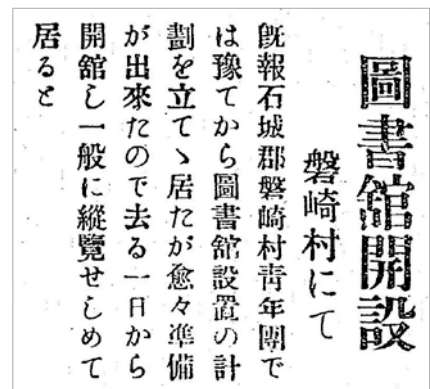 圖書館開設
磐崎村にて
既報石城郡磐崎村靑年團で
は豫てから圖書舘設置の計
劃を立てゝ居たが愈々準備
が出來たので去る一日から
開舘し一般に縱覽せしめて
居ると